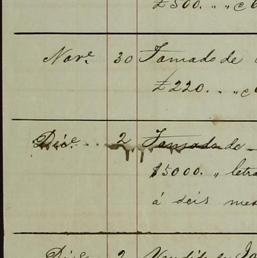 £500. " " c
Nov.e 30 Tomado de
£220. " " c
Dic.e 2 Tomado de
$5000. " letra
á deis mes
Dic.e 2 Vendido a Jo